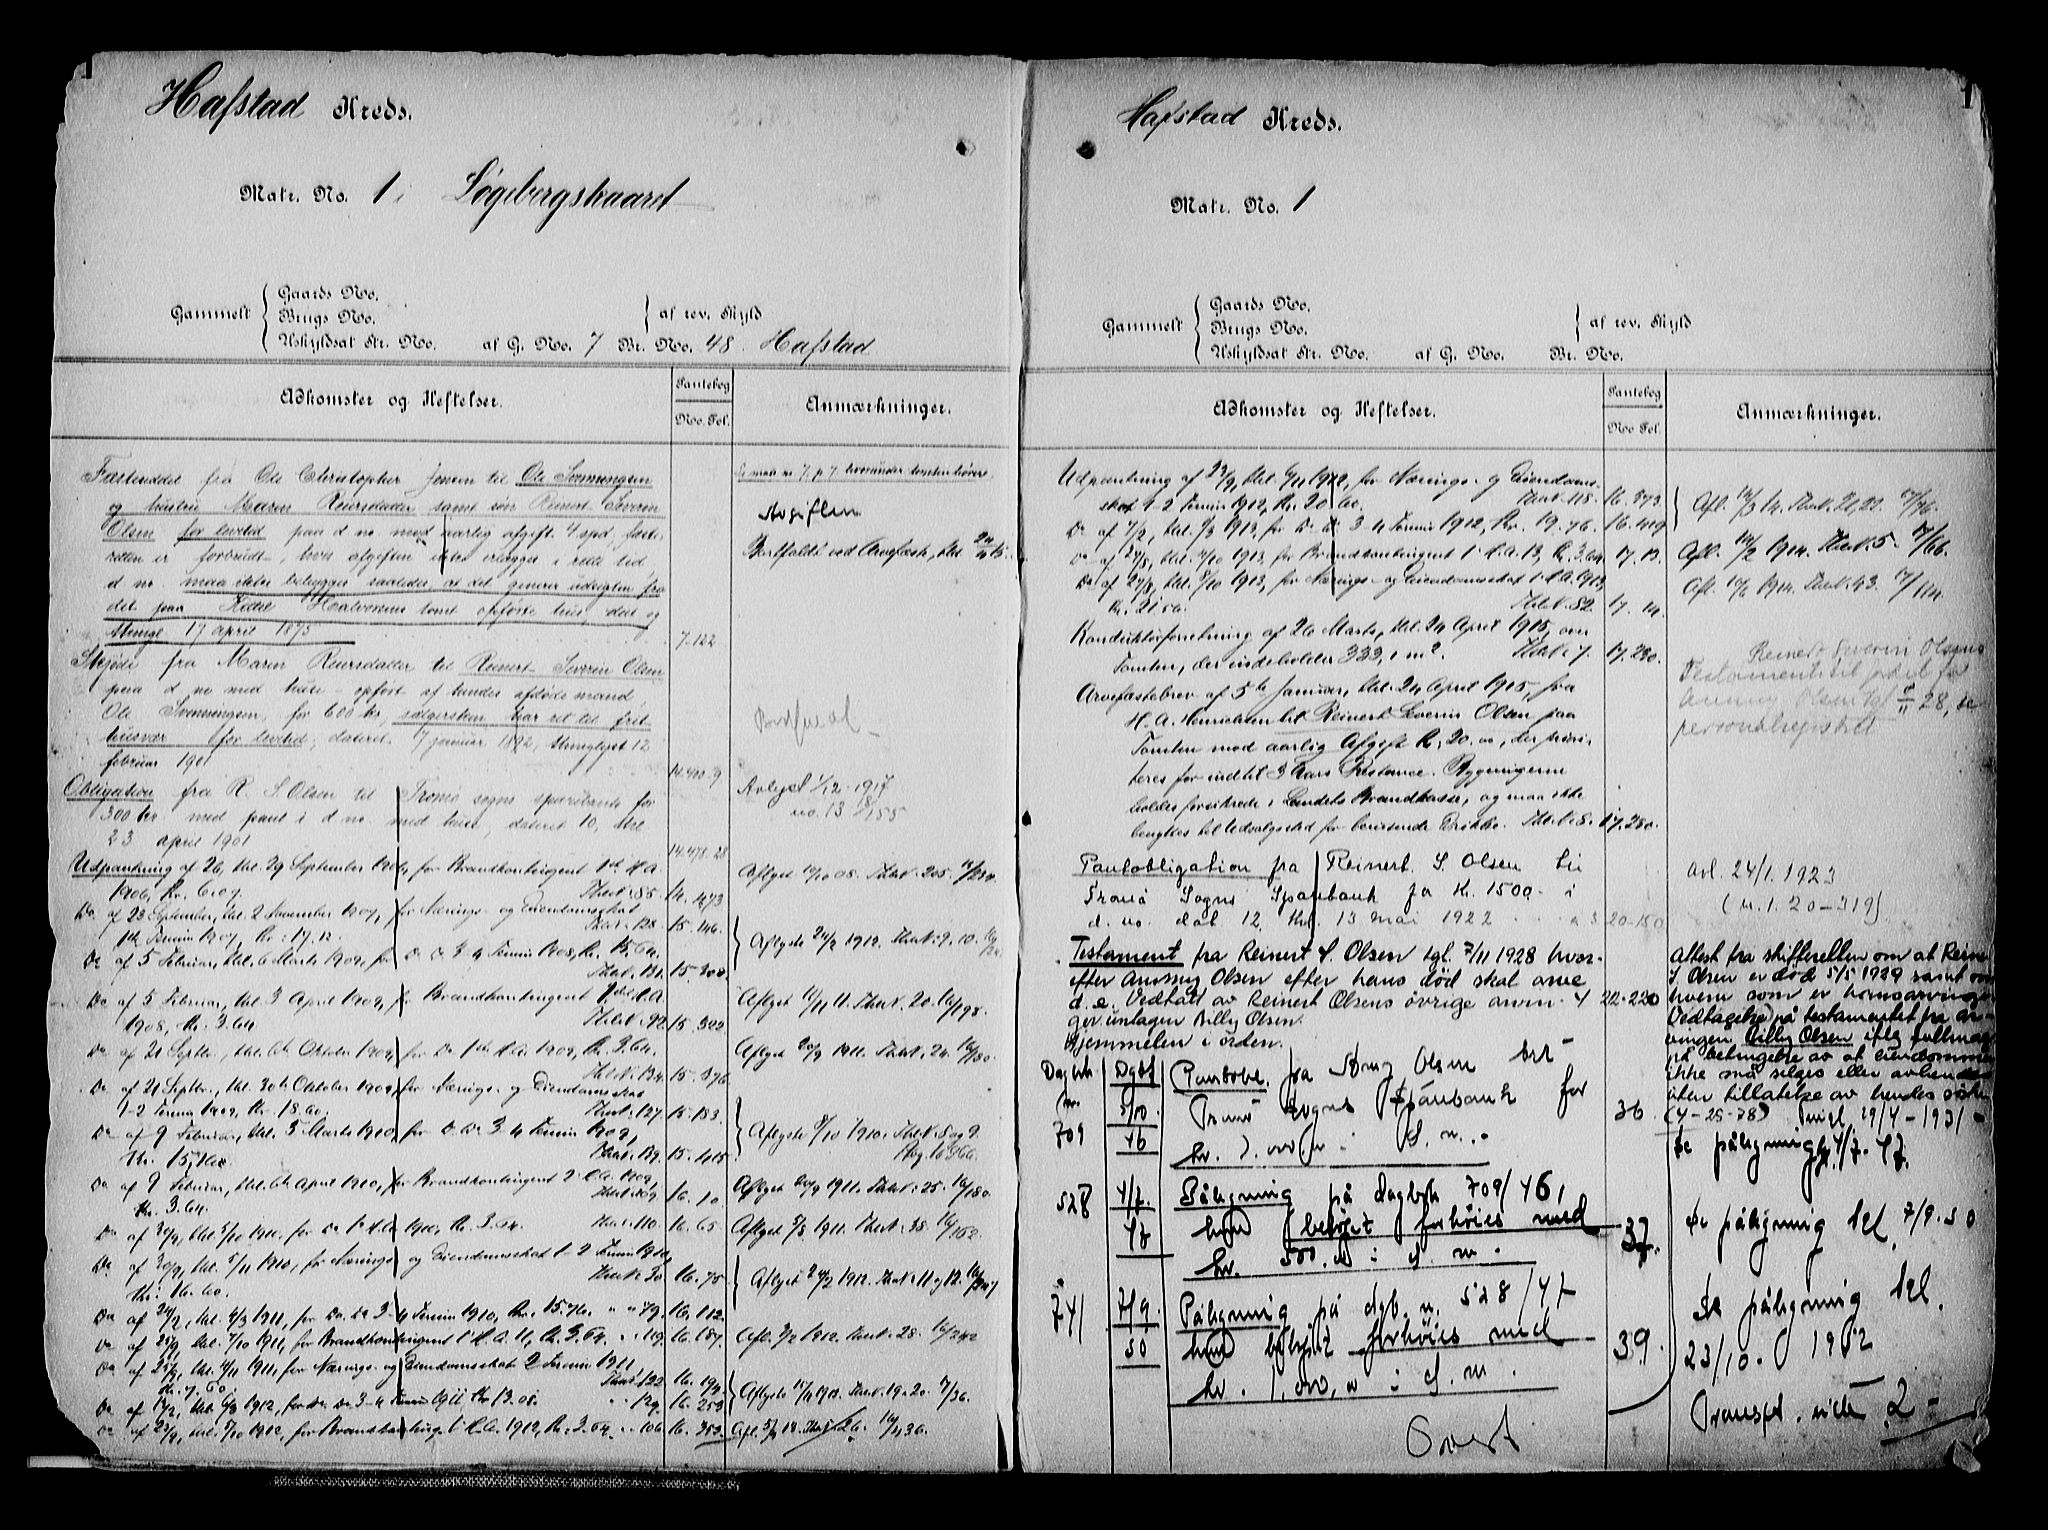 1
Hafstad Kreds.
Matr. No. 1, Løgebergskaaret
Gammelt
Gaards No.
Brugs No.
Uskyldsat Str. No. af G. No. 7 Br. No. 48 Hafstad
af rev. Skyld
Adkomster og Heftelser.
Pantebog
No. Fol.
Anmærkninger.
Fæsteseddel fra Ole Christopher Jensen til Ole Svenningsen
og hustru Maren Reiersdatter samt søn Reinert Severin
Olsen for levetid paa d no mod aarlig afgift 4 spd, fæste-
retten er forbrudt, hvis afgiften ikke erlægges i rette tid,
d no maa ikke bebygges saaledes, at det generer udsigten fra
det paa Halvorsens tomt opførte hus, dat og
thingl 17 april 1875 7.122
Afgiften
Skjøde fra Maren Reiersdatter til Reinert Severin Olsen
paa d no med huse opført af hendes afdøde mand,
Ole Svenningsen, for 600 kr, sælgersken har ret til frit
husvær for levetid, dateret 7 januar 1892, thinglyst 12
februar 1901 14.440-9
Bortfaldt
Obligation fra R. S. Olsen til Tromø sogns sparebank for
300 kr med pant i d no med huse, dateret 10, thl
23 april 1901 14.478.28
Avlyst 1/12-1917
no. 13 18/155
Udpantning af 26, thl. 29 September 1906, for Brandkontingent 1ste H.A.
1906, Kr. 6.07. Thl.N. 85. 14.473
Do af 23 September, thl. 2 November 1907, for Nærings- og Eiendomsskat
1ste Termin 1907, Kr. 17.12. 15.146.
Do af 5 Februar, thl. 6 Marts 1909, for Do Do 3-4 Termin 1908, Kr. 15.64.
Aflyste 24/2 1912. Thl.N. 9. 10.
Do af 5 Februar, thl. 3 April 1909, for Brandkontingent 2det H.A.
1908, Kr. 3.64. Thl.N. 92 15.322
Aflyst 11/11 11. Thl.N. 20. 16/198.
Do af 21 Septbr., thl. 6te Oktober 1909, for Do 1ste H.A. 1909, Kr. 3.64.
Thl.N. 134. 15.376
Aflyst 20/9 1911. Thl.N. 24. 16/180.
Do af 21 Septbr., thl. 20de Oktober 1909, for Nærings- og Eiendomsskat
1-2 Termin 1909, Kr. 18.60. Thl.N. 127. 15.383.
Do af 9 Februar, thl. 5 Marts 1910, for Do Do 3-4 Termin 1909,
Kr. 15, 15.415
Aflyste 8/10 1910. Thl.N. 8 og 9.
Do af 9 Februar, thl. 6te April 1910, for Brandkontingent 2 H.A. 1909,
Kr. 3.64. 16.10.
Aflyst 20/9 1911. Thl.N. 25. 16/180.
Do af 30/9, thl. 5/10 1910, for Do 1 H.A. 1910, Kr. 3.64. Thl.N. 110. 16.65
Aflyst 5/8 1911. Thl.N. 35. 16/162.
Do af 30/9, thl. 5/11 1910, for Nærings- og Eiendomsskat 1-2 Termin 1910,
Kr. 16.60. Thl.N. 30 16.75
Aflyst 24/2 1912. Thl.N. 11 og 12.
Do af 24/2, thl. 4/3 1911, for Do. Do 3-4 Termin 1910, Kr. 15.76. " " 49. 16.112.
Do af 25/9, thl. 7/10 1911, for Brandkontingent 1' H.A. 11, Kr. 3.64. " " 119. 16.187.
Afl. 3/2 1912. Thl.N. 28. 16/242
Do af 25/9, thl. 4/11 1911, for Nærings- og Eiendomsskat 2 Termin 1911,
Kr. 7.60. Thl.N. 122 16.194
Do af 17/2, thl. 6/3 1912, for Do. Do 3-4 Termin 1911 Kr. 13.08. " " 129. 16.253
Aflyste 15/11 1913. Thl.N. 19 o. 20. 17/36.
Do af 23/9, thl. 5/10 1912, for Brandkonting. 1' H.A. 1912, Kr. 3.64. " " 106 16.353.
Afl. 5/7 13. Thl.N. 26. 16/436.
1
Hafstad Kreds.
Matr. No. 1
Gammelt
Gaards No.
Brugs No.
Uskyldsat Str. No. af G. No. Br. No.
af rev. Skyld
Adkomster og Heftelser.
Pantebog
No Fol.
Anmærkninger.
Udpantning af 23/9, thl. 6/11 1912, for Nærings- og Eiendoms-
skat 1-2 Termin 1912, Kr. 20.60. Thl.N. 118. 16.373.
Do af 7/2, thl. 5/3 1913, for Do Do 3-4 Termin 1912, Kr. 19.76. 16.419
Afl. 14/3 14. Thl.N. 21, 22. 17/76.
Do af 27/8, thl. 4/10 1913, for Brandkontingent 1' H.A. 13, Kr. 3.64. 17.13.
Afl. 14/2 1914. Thl.N. 5. 17/66.
Do af 27/8, thl. 8/10 1913, for Nærings- og Eiendomsskat 1' H.A. 1913,
Kr. 21.56. Thl.N. 82. 17.14.
Afl. 10/6 1914. Thl.N. 43. 17/114.
Konduktørforretning af 26 Marts, thl. 24 April 1915, over
Tomten, der indeholder 333,1 m². Thl.N. 7. 17.230.
Arvefæstebrev af 5te Januar, thl. 24 April 1915 fra
H. A. Henrichsen til Reinert Severin Olsen paa
Tomten mod aarlig Afgift Kr. 20.00, der priori-
teres for indtil 3 Aars Restance. Bygningerne
holdes forsikrede i Landets Brandkasse, og maa ikke
benyttes til Udsalgssted for berusende Drikke. Thl.N. 8. 17.230.
Reinert Severin Olsens
Testamente til pdel for
Olsen tgl 7/11 28, se
personalregistret
Pantobligation fra Reinert S. Olsen til
Tromø Sogns Sparebank for kr. 1500.- i
d. no. dat 12, thl. 13 mai 1922 20-150
avl. 24/1. 1923
(n. 1. 20-319).
Testament fra Reinert S. Olsen tgl. 7/11 1928 hvor-
efter Olsen efter hans død skal arve
d. e. Vedtatt av Reinert Olsens øvrige arvin-
ger untagen Billy Olsen. 22-220
Hjemmelen i orden.
Attest fra skifteretten om at Reinert
S. Olsen er død 5/5 1929 samt om
hvem som er hans arvinger
Vedtagelse på testamentet fra ar-
vingen Billy Olsen iflg fullmagt
på betingelse av at eiendommen
ikke må selges eller avhendes
uten tillatelse av hendes søsken
(4-25-78) tingl 29/4-1931-
Dagbk
nr.
709
Dgbf
5/10
46
Pantobl. fra Olsen til
Tromø Sogns Sparebank for
kr. i d. n. 36
Se påtegning 4/7-47.
528
4/7
47
Påtegning på dagbk 709/46,
beløpet forhøies med
kr. 500.00 i d. n. 37
Se påtegning tgl. 7/9-50
741
7/9
50
Påtegning på dgb. n. 528/47
beløpet forhøies med
kr. 1.000,00 i d. n. 39.
Se påtegning tgl.
23/10. 1952
Transpt. side 2-
Overf